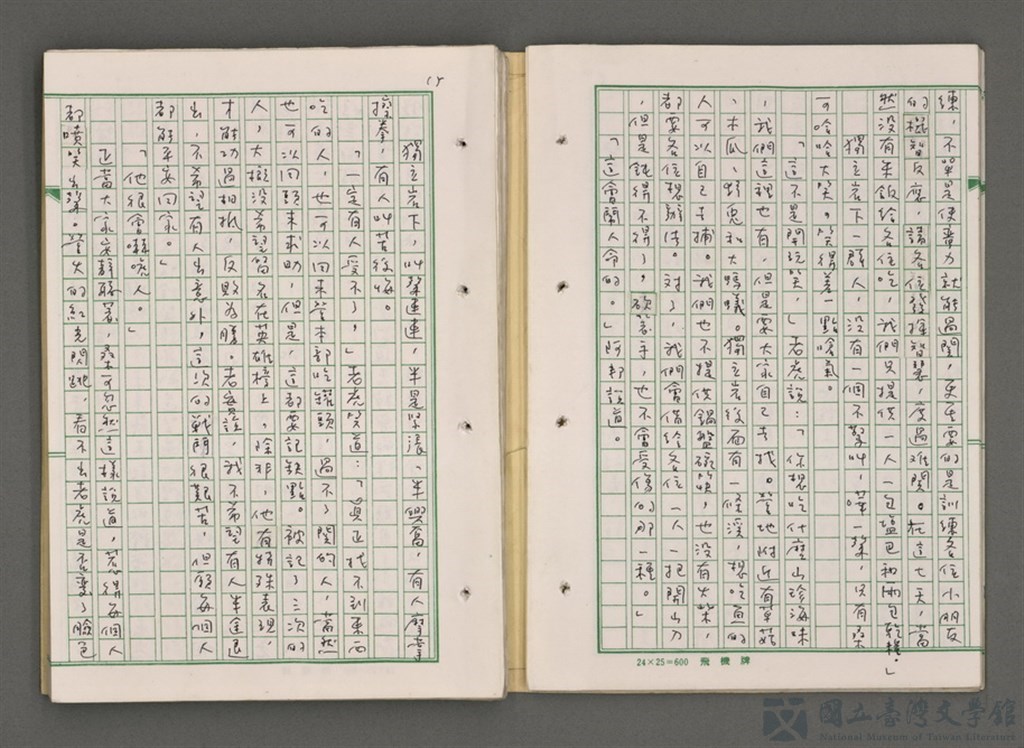 練，不單是使蠻力就能過關，更重要的是訓練各位小朋友
的機智反應，請各位發揮智慧，度過難關。在這七天，當
然沒有米飯給各位吃，我們只提供一人一包鹽巴和兩包乾糧。」
獨立岩下一群人，沒有一個不驚叫，嘩一聲，只有桑
可哈哈大笑。笑得差一點嗆氣。
「這不是開玩笑，」老虎說：「你想吃什麼山珍海味
，我們這裡也有，但是要大家自己去找。營地附近有草菇
、木瓜、野兔和大螞蟻。獨立岩後面有一條溪，想吃魚的
人可以自己去捕。我們也不提供鍋盤碗筷，也沒有火柴，
都要各位想辦法。對了，我們會借給各位一人一把開山刀
，但是鈍得不得了，砍著手，也不會受傷的那一種。」
「這會鬧人命的。」阿邦說道。
24×25=600 飛機牌
15
獨立岩下，叫聲連連，半是緊張、半興奮，有人摩拳
擦拳，有人叫苦後悔。
「一定有人受不了，」老虎笑道：「真正找不到東西
吃的人，也可以回來營本部吃罐頭，過不了關的人，當然
也可以回頭來求助，但是，這都要記缺點。被記了三次的
人，大概沒希望留名在英雄榜上，除非，他有特殊表現，
才能功過相抵，反敗為勝。老實說，我不希望有人半途退
出，不希望有人出意外，這次的戰鬥很艱苦，但願每個人
都能平安回家。」
「他很會嚇唬人。」
正當大家安靜聽著，桑可忽然這樣說道，惹得每個人
都噴笑出聲。營火的紅光閃跳，看不出老虎是否變了臉色
國立臺灣文學館
National Museum of Taiwan Literature